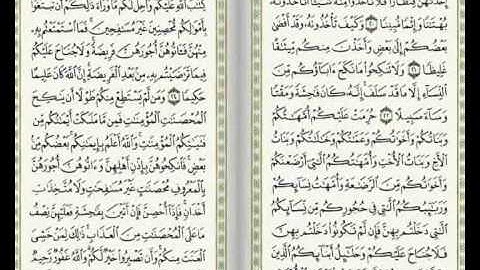 إِحْدَىٰهُنَّ قِنطَارًا فَلَا تَأْخُذُوا۟ مِنْهُ شَيْـًٔا أَتَأْخُذُونَهُۥ
بُهْتَٰنًا وَإِثْمًا مُّبِينًا ٢٠ وَكَيْفَ تَأْخُذُونَهُۥ وَقَدْ أَفْضَىٰ
بَعْضُكُمْ إِلَىٰ بَعْضٍ وَأَخَذْنَ مِنكُم مِّيثَٰقًا
غَلِيظًا ٢١ وَلَا تَنكِحُوا۟ مَا نَكَحَ ءَابَآؤُكُم مِّنَ
ٱلنِّسَآءِ إِلَّا مَا قَدْ سَلَفَ إِنَّهُۥ كَانَ فَٰحِشَةً وَمَقْتًا
وَسَآءَ سَبِيلًا ٢٢ حُرِّمَتْ عَلَيْكُمْ أُمَّهَٰتُكُمْ
وَبَنَاتُكُمْ وَأَخَوَٰتُكُمْ وَعَمَّٰتُكُمْ وَخَٰلَٰتُكُمْ وَبَنَاتُ
ٱلْأَخِ وَبَنَاتُ ٱلْأُخْتِ وَأُمَّهَٰتُكُمُ ٱلَّٰتِىٓ أَرْضَعْنَكُمْ
وَأَخَوَٰتُكُم مِّنَ ٱلرَّضَٰعَةِ وَأُمَّهَٰتُ نِسَآئِكُمْ
وَرَبَٰٓئِبُكُمُ ٱلَّٰتِى فِى حُجُورِكُم مِّن نِّسَآئِكُمُ
ٱلَّٰتِى دَخَلْتُم بِهِنَّ فَإِن لَّمْ تَكُونُوا۟ دَخَلْتُم بِهِنَّ
فَلَا جُنَاحَ عَلَيْكُمْ وَحَلَٰٓئِلُ أَبْنَآئِكُمُ ٱلَّذِينَ
كِتَٰبَ ٱللَّهِ عَلَيْكُمْ وَأُحِلَّ لَكُم مَّا وَرَآءَ ذَٰلِكُمْ أَن تَبْتَغُوا۟
بِأَمْوَٰلِكُم مُّحْصِنِينَ غَيْرَ مُسَٰفِحِينَ فَمَا ٱسْتَمْتَعْتُم بِهِۦ
مِنْهُنَّ فَـَٔاتُوهُنَّ أُجُورَهُنَّ فَرِيضَةً وَلَا جُنَاحَ عَلَيْكُمْ
فِيمَا تَرَٰضَيْتُم بِهِۦ مِنۢ بَعْدِ ٱلْفَرِيضَةِ إِنَّ ٱللَّهَ كَانَ عَلِيمًا
حَكِيمًا ٢٤ وَمَن لَّمْ يَسْتَطِعْ مِنكُمْ طَوْلًا أَن يَنكِحَ
ٱلْمُحْصَنَٰتِ ٱلْمُؤْمِنَٰتِ فَمِن مَّا مَلَكَتْ أَيْمَٰنُكُم مِّن
فَتَيَٰتِكُمُ ٱلْمُؤْمِنَٰتِ وَٱللَّهُ أَعْلَمُ بِإِيمَٰنِكُم بَعْضُكُم مِّنۢ
بَعْضٍ فَٱنكِحُوهُنَّ بِإِذْنِ أَهْلِهِنَّ وَءَاتُوهُنَّ أُجُورَهُنَّ
بِٱلْمَعْرُوفِ مُحْصَنَٰتٍ غَيْرَ مُسَٰفِحَٰتٍ وَلَا مُتَّخِذَٰتِ
أَخْدَانٍ فَإِذَآ أُحْصِنَّ فَإِنْ أَتَيْنَ بِفَٰحِشَةٍ فَعَلَيْهِنَّ نِصْفُ
مَا عَلَى ٱلْمُحْصَنَٰتِ مِنَ ٱلْعَذَابِ ذَٰلِكَ لِمَنْ خَشِىَ
ٱلْعَنَتَ مِنكُمْ وَأَن تَصْبِرُوا۟ خَيْرٌ لَّكُمْ وَٱللَّهُ غَفُورٌ رَّحِيمٌ